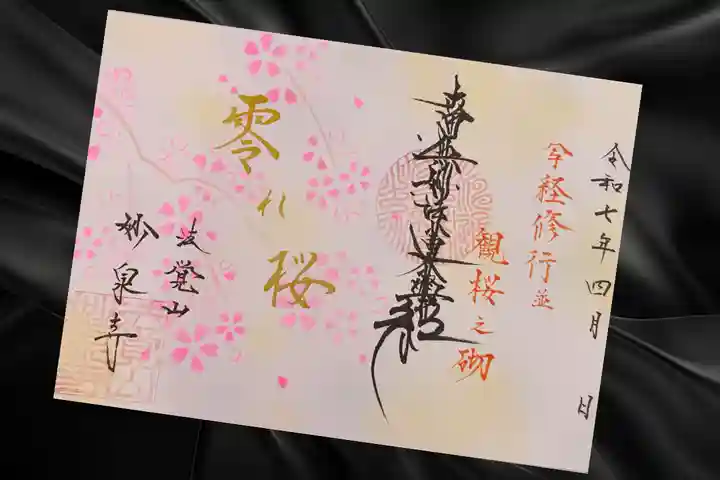 令和七年四月 日
写経修行並
観桜之砌
南無妙法蓮華経
零れ桜
法覚山
妙泉寺